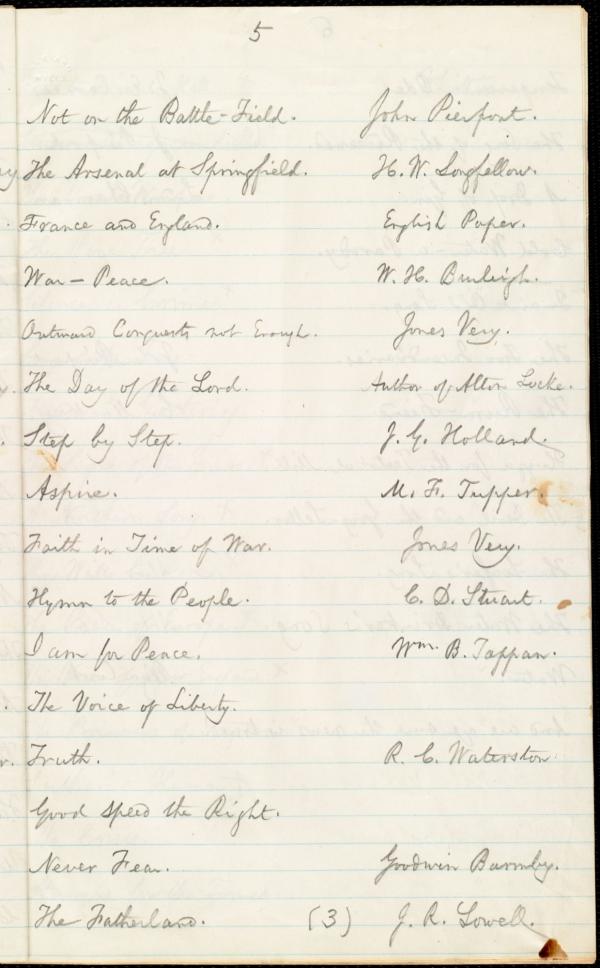 5
Not on the Battle-Field. John Pierpont.
The Arsenal at Springfield. H. W. Longfellow.
France and England. English Paper.
War – Peace. W. H. Burleigh.
Outward Conquests not Enough. Jones Very.
The Day of the Lord. Author of Alton Locke.
Step by Step. J. G. Holland.
Aspire. M. F. Tupper.
Faith in Time of War. Jones Very.
Hymn to the People. C. D. Stuart.
I am for Peace. Wm. B. Tappan.
The Voice of Liberty.
Truth. R. C. Waterston.
Good speed the Right.
Never Fear. Goodwin Barmby.
The Fatherland. (3) J. R. Lowell.